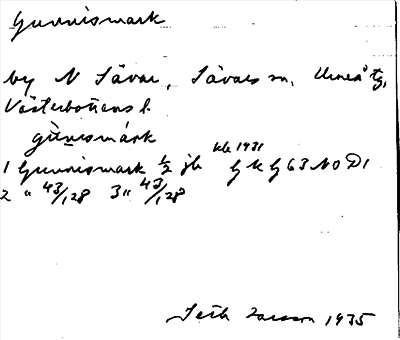 Gunnismark
by N Sävar, Sävars sn, Umeå tg,
Västerbottens l.
gùnısmárk
1 Gunnismark ½ jb kb 1931 G K G 63 N O D1
2 " 43/128 3 " 43/128
Seth Larsson 1935